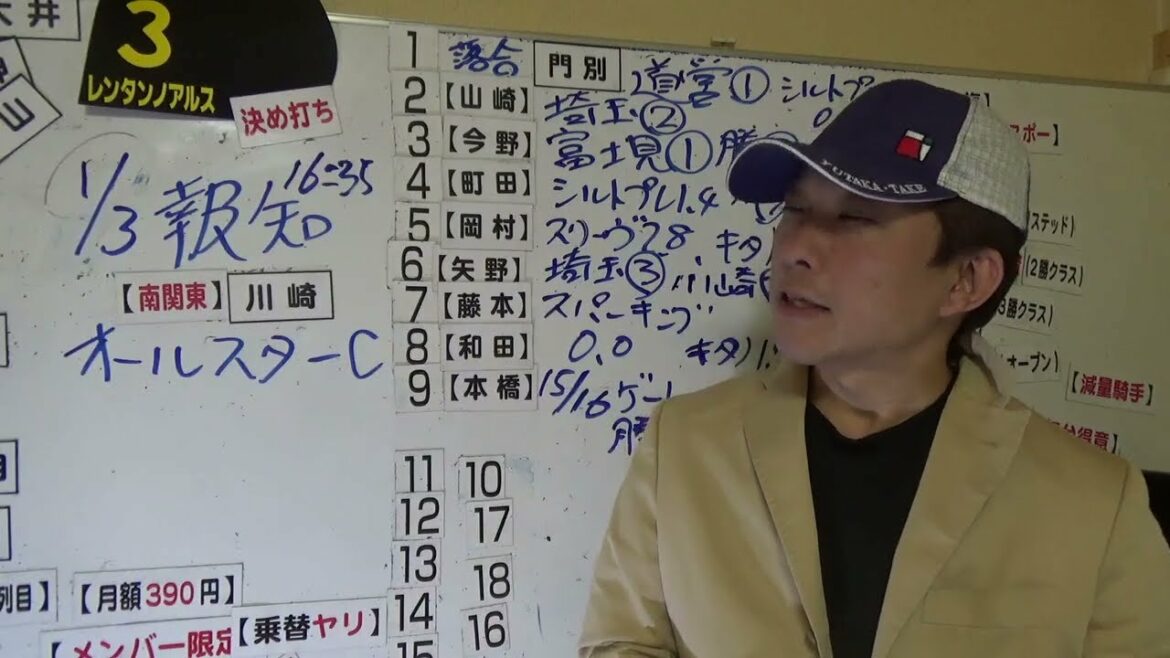 大井
山
3
レンタンノアルス
決め打ち
1/3 報知 16=35
【南関東】 川崎
オールスターC
列目】 【月額390円】
【メンバー限定 【乗替ヤリ】
1 落合 門別 道営①
2 【山崎】 埼玉②
3 【今野】 富士見① 勝
4 【町田】 シルトプレ1.4
5 【岡村】 スリーヴ28 キタ
6 【矢野】 埼玉③ 川崎
7 【藤本】 スパーキング
8 【和田】 0.0 キタ
9 【本橋】 15/16ゲート
勝
11 10
12 17
13
18
14
16
15
スポー】
ステッド)
(2勝クラス)
3勝クラス)
オープン)
【減量騎手】
台得意】
YUTAKA・TAKE